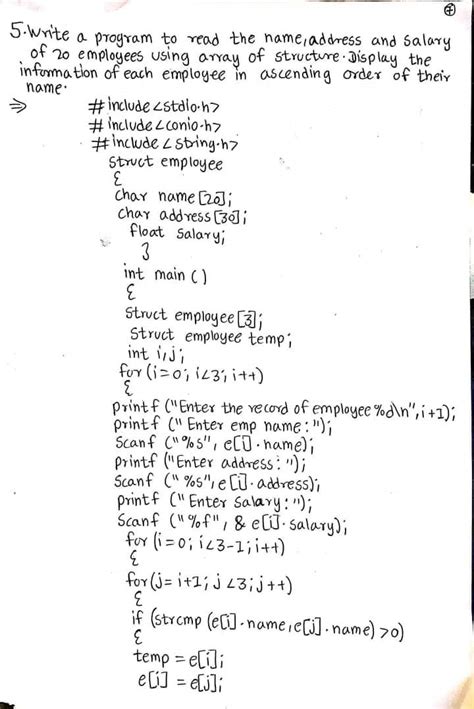 7
5. Write a program to read the name, address and salary
of 20 employees using array of structure. Display the
information of each employee in ascending order of their
name.
⇒ #include <stdio.h>
#include <conio.h>
#include <string.h>
Struct employee
{
char name [20];
char address [30];
float salary;
}
int main ()
{
Struct employee [3];
Struct employee temp;
int i,j;
for (i=0; i<3; i++)
{
printf ("Enter the record of employee %d\n", i+1);
printf ("Enter emp name:");
Scanf ("%s", e[i].name);
printf ("Enter address: ");
Scanf ("%s", e[i].address);
printf ("Enter Salary:");
Scanf ("%f", & e[i].salary);
for (i=0; i<3-1; i++)
{
for (j= i+1; j<3; j++)
{
if (strcmp (e[i].name, e[j].name) >0)
{
temp = e[i];
e[i] = e[j];